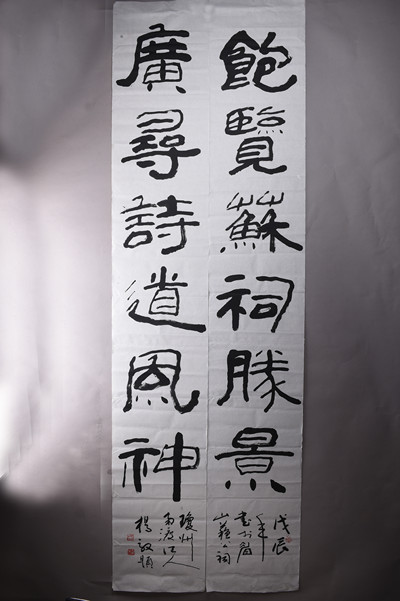 飽覽蘇祠勝景
戊辰
年書於眉
山蘇公祠
廣尋詩道風神
瓊州
南渡江人
楊